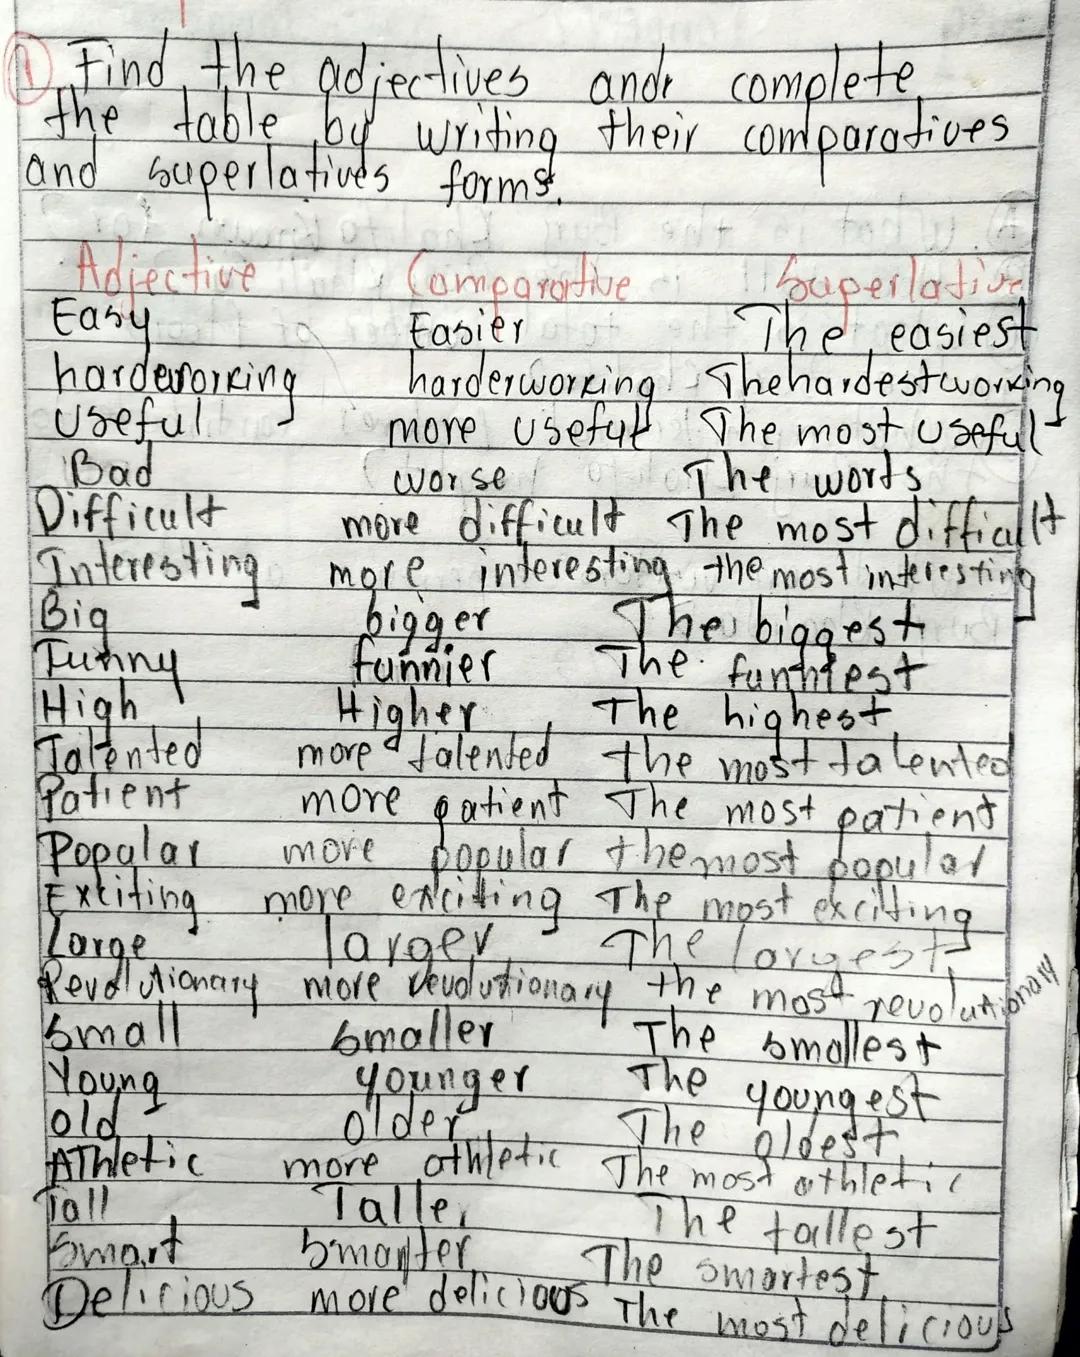 1 Find the adjectives and complete
the table by writing their comparatives
and superlatives forms.
Adjective Comparative Superlative
Easy Easier The easiest
hardeworking harderworking The hardestworking
useful more useful The most useful
Bad worse The worts
Difficult more difficult The most difficult
Interesting more interesting the most interesting
Big bigger The biggest
Funny funnier The funniest
High Higher The highest
Talented more talented the most talented
Patient more patient The most patient
Popular more popular the most popular
Exciting more exciting The most exciting
Large larger The largest
Revolutionary more revolutionary the most revolutionary
Small smaller The smallest
Young younger The youngest
old older The oldest
AThletic more athletic The most athletic
Tall Taller The tallest
Smart Smarter The smartest
Delicious more delicious The most delicious